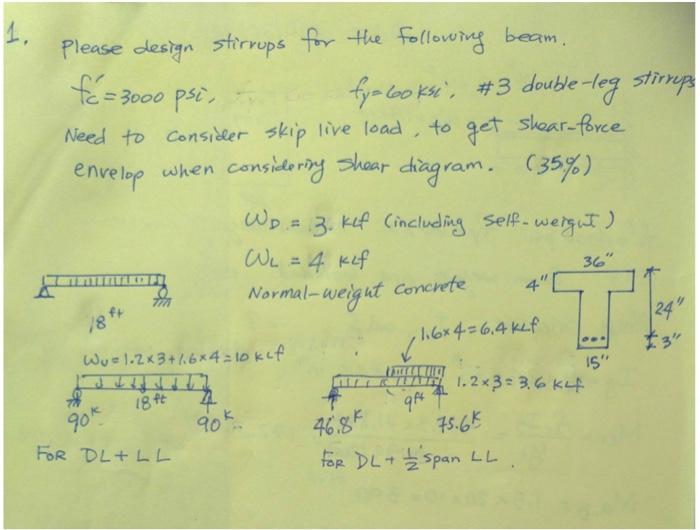 1. Please design stirrups for the following beam.
f'c = 3000 psi, fy = 60 ksi, #3 double-leg stirrups
Need to consider skip live load, to get shear-force
envelop when considering shear diagram. (35%)
WD = 3. klf (including self-weight)
WL = 4 klf
Normal-weight concrete
36"
4"
24"
3"
15"
18 ft
1.6x4=6.4 klf
Wu=1.2x3+1.6x4=10 klf
1.2x3=3.6 klf
18 ft
9ft
90k 90k
46.8k 75.6k
FOR DL + LL
FOR DL + 1/2 span LL.